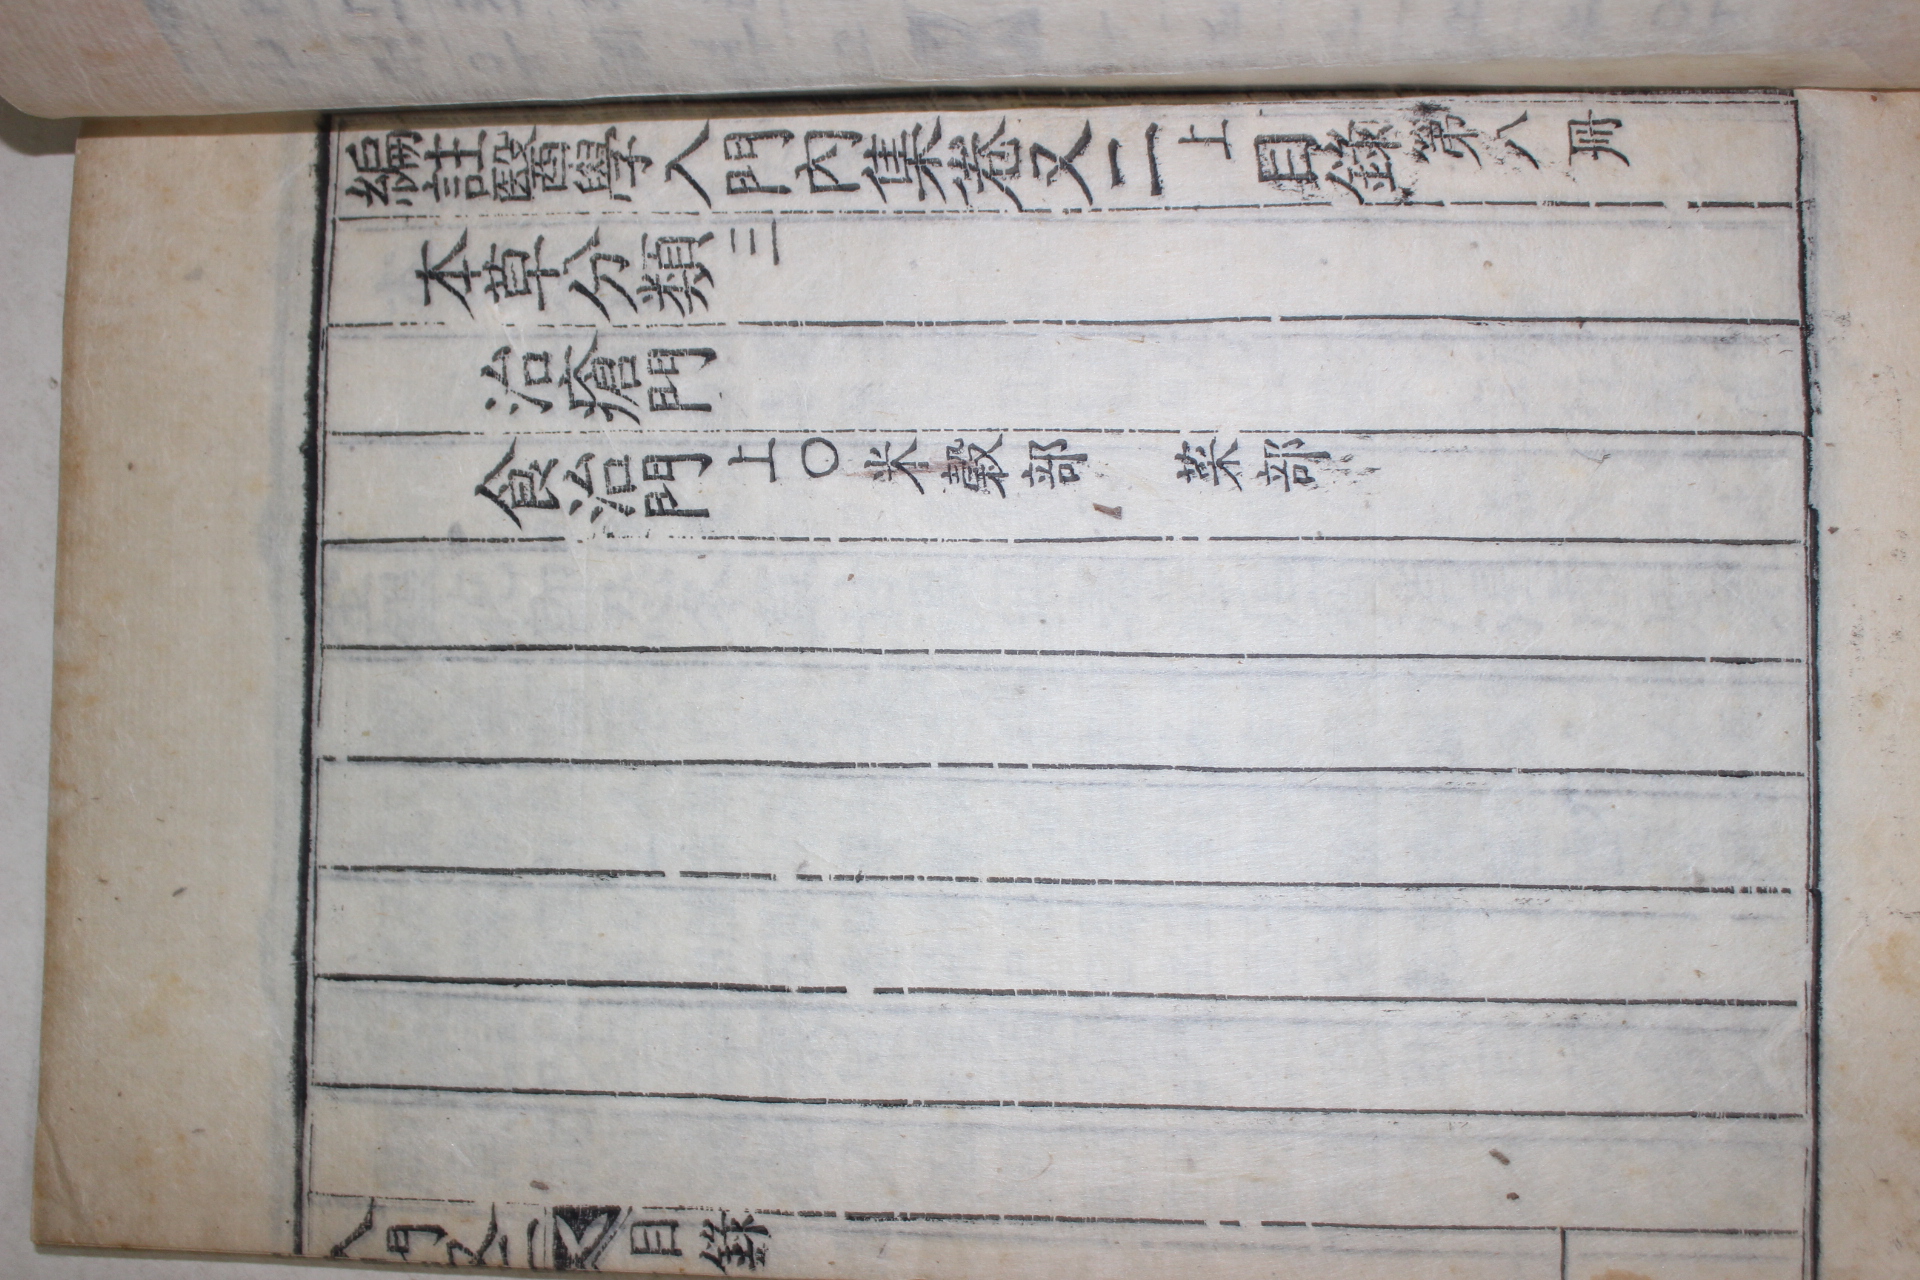 編註醫學入門內集卷之二上目錄 第八冊
本草分類三
治瘡門
食治門上〇米穀部 菜部
入門之二 目錄